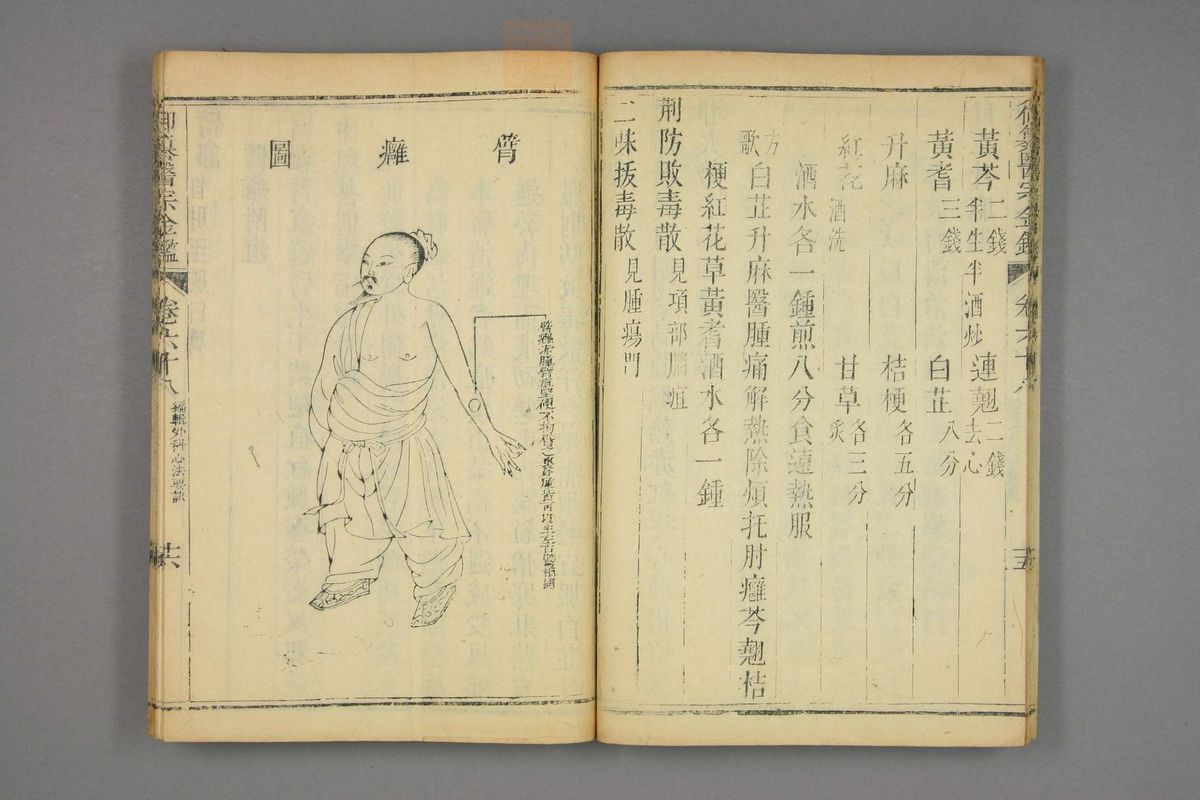 御纂醫宗金鑑
卷六十八
五
黃芩二錢半生半酒炒
連翹二錢去心
黃耆三錢
白芷八分
升麻
桔梗各五分
紅花酒洗
甘草炙各三分
酒水各一鍾煎八分食遠熱服
方歌
白芷升麻醫腫痛解熱除煩托肘癰芩翹桔
梗紅花草黃耆酒水各一鍾
荊防敗毒散見項部腦疽
二味拔毒散見腫瘍門
臂癰圖
臂癰赤腫臂疽堅硬不拘
御纂醫宗金鑑
卷六十八
編輯外科心法要訣
十六